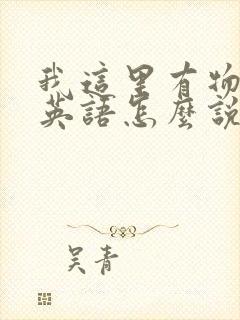 我這里有物
英語怎麼說
吴青